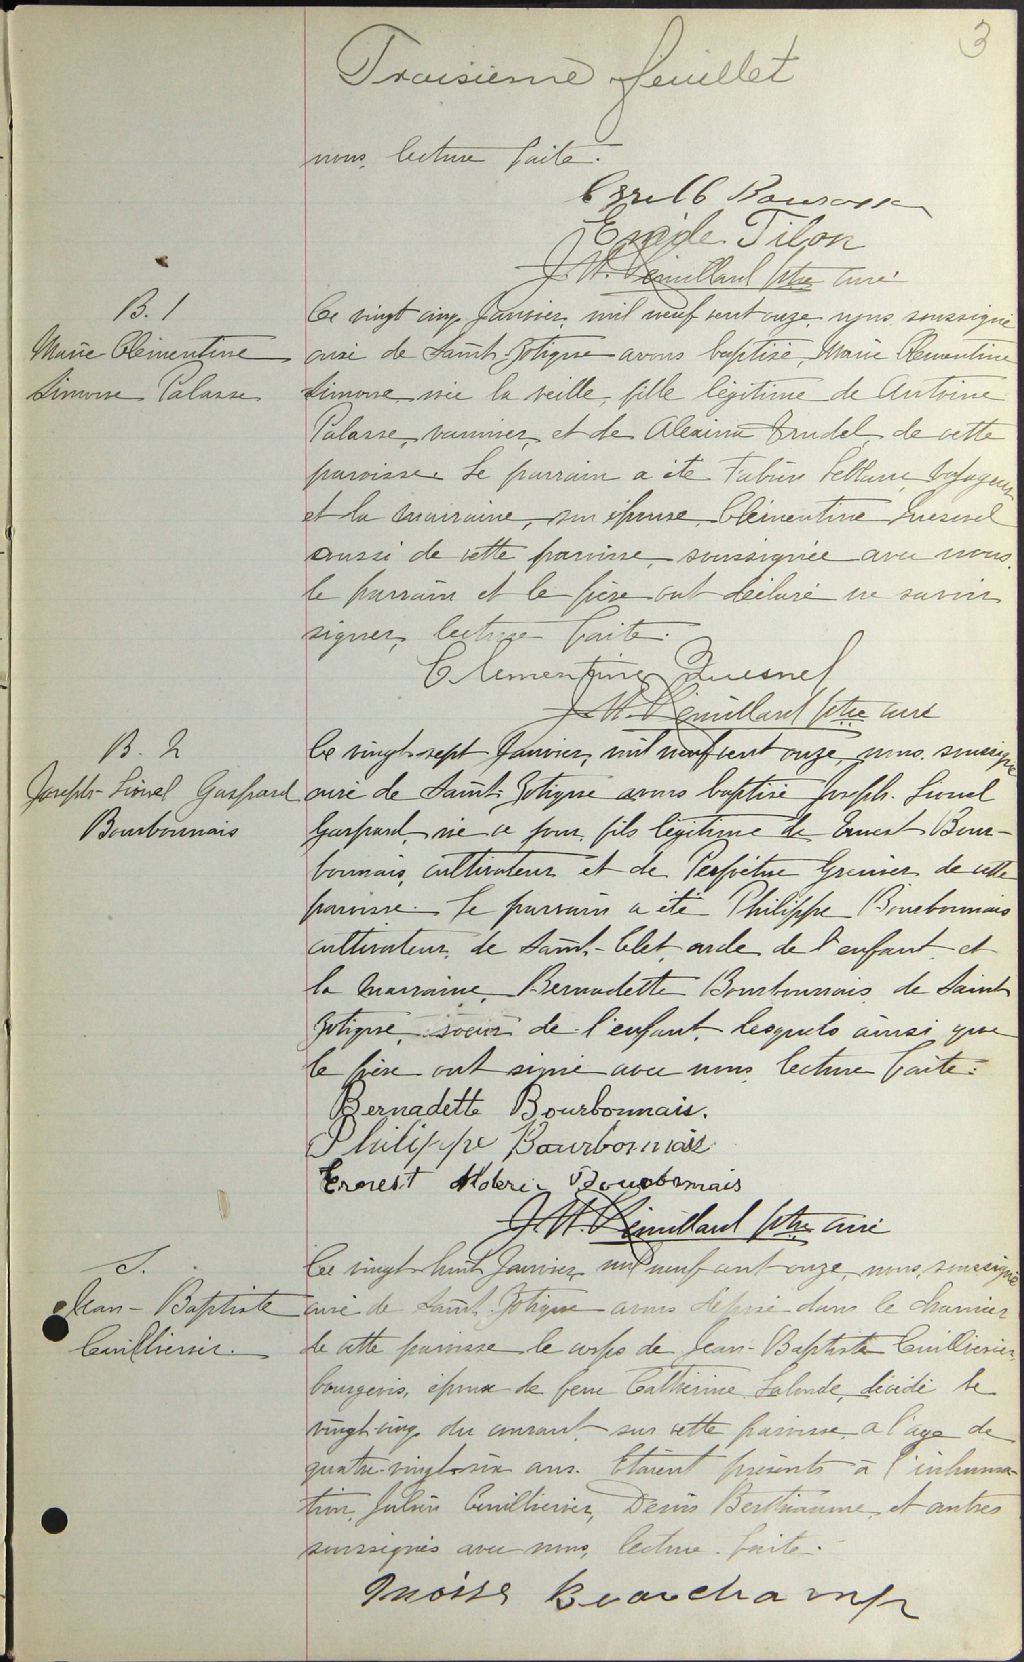 3
Troisième feuillet
nous, lecture faite.
Emile Filon
J. W. Remillard ptre curé
B. 1
Marie Clémentine
Simone Palasse
Ce vingt cinq Janvier, mil neuf cent onze, nous, soussigné
curé de Saint-Zotique avons baptisé, Marie Clémentine
Simone née la veille, fille légitime de Antoine
Palasse, vannier, et de Alexina Trudel, de cette
paroisse. Le parrain a été Fabien Leblanc, voyageur
et la marraine, son épouse, Clémentine Quesnel
aussi de cette paroisse, soussignée avec nous.
le parrain et le père ont déclaré ne savoir
signer, lecture faite.
Clementine Quesnel
J. W. Remillard ptre curé
B. 2
Joseph-Lionel Gaspard
Bourbonnais
Ce vingt-sept Janvier, mil neuf cent onze, nous, soussigné
curé de Saint-Zotique avons baptisé Joseph-Lionel
Gaspard, né ce jour, fils légitime de Ernest Bour-
bonnais, cultivateur et de Perpétue Grenier de cette
paroisse. Le parrain a été Philippe Bourbonnais
cultivateur, de Saint-Clet, oncle de l'enfant et
la marraine, Bernadette Bourbonnais de Saint
Zotique, soeur de l'enfant, lesquels ainsi que
le père ont signé avec nous, lecture faite.
Bernadette Bourbonnais.
Philippe Bourbonnais
Ernest Bourbonnais
J. W. Remillard ptre curé
S.
Jean-Baptiste
Cuillierier.
Ce vingt-huit Janvier, mil neuf cent onze, nous, soussigné
curé de Saint-Zotique avons déposé dans le charnier
de cette paroisse le corps de Jean-Baptiste Cuillierier,
bourgeois, époux de feue Catherine Lalonde, décédé le
vingt-cinq du courant, sur cette paroisse, a l'age de
quatre-vingt-six ans. Etaient présents à l'inhuma-
tion, Julien Cuillierier, Denis Berthiaume, et autres
soussignés avec nous, lecture faite.
Moise Beauchamp